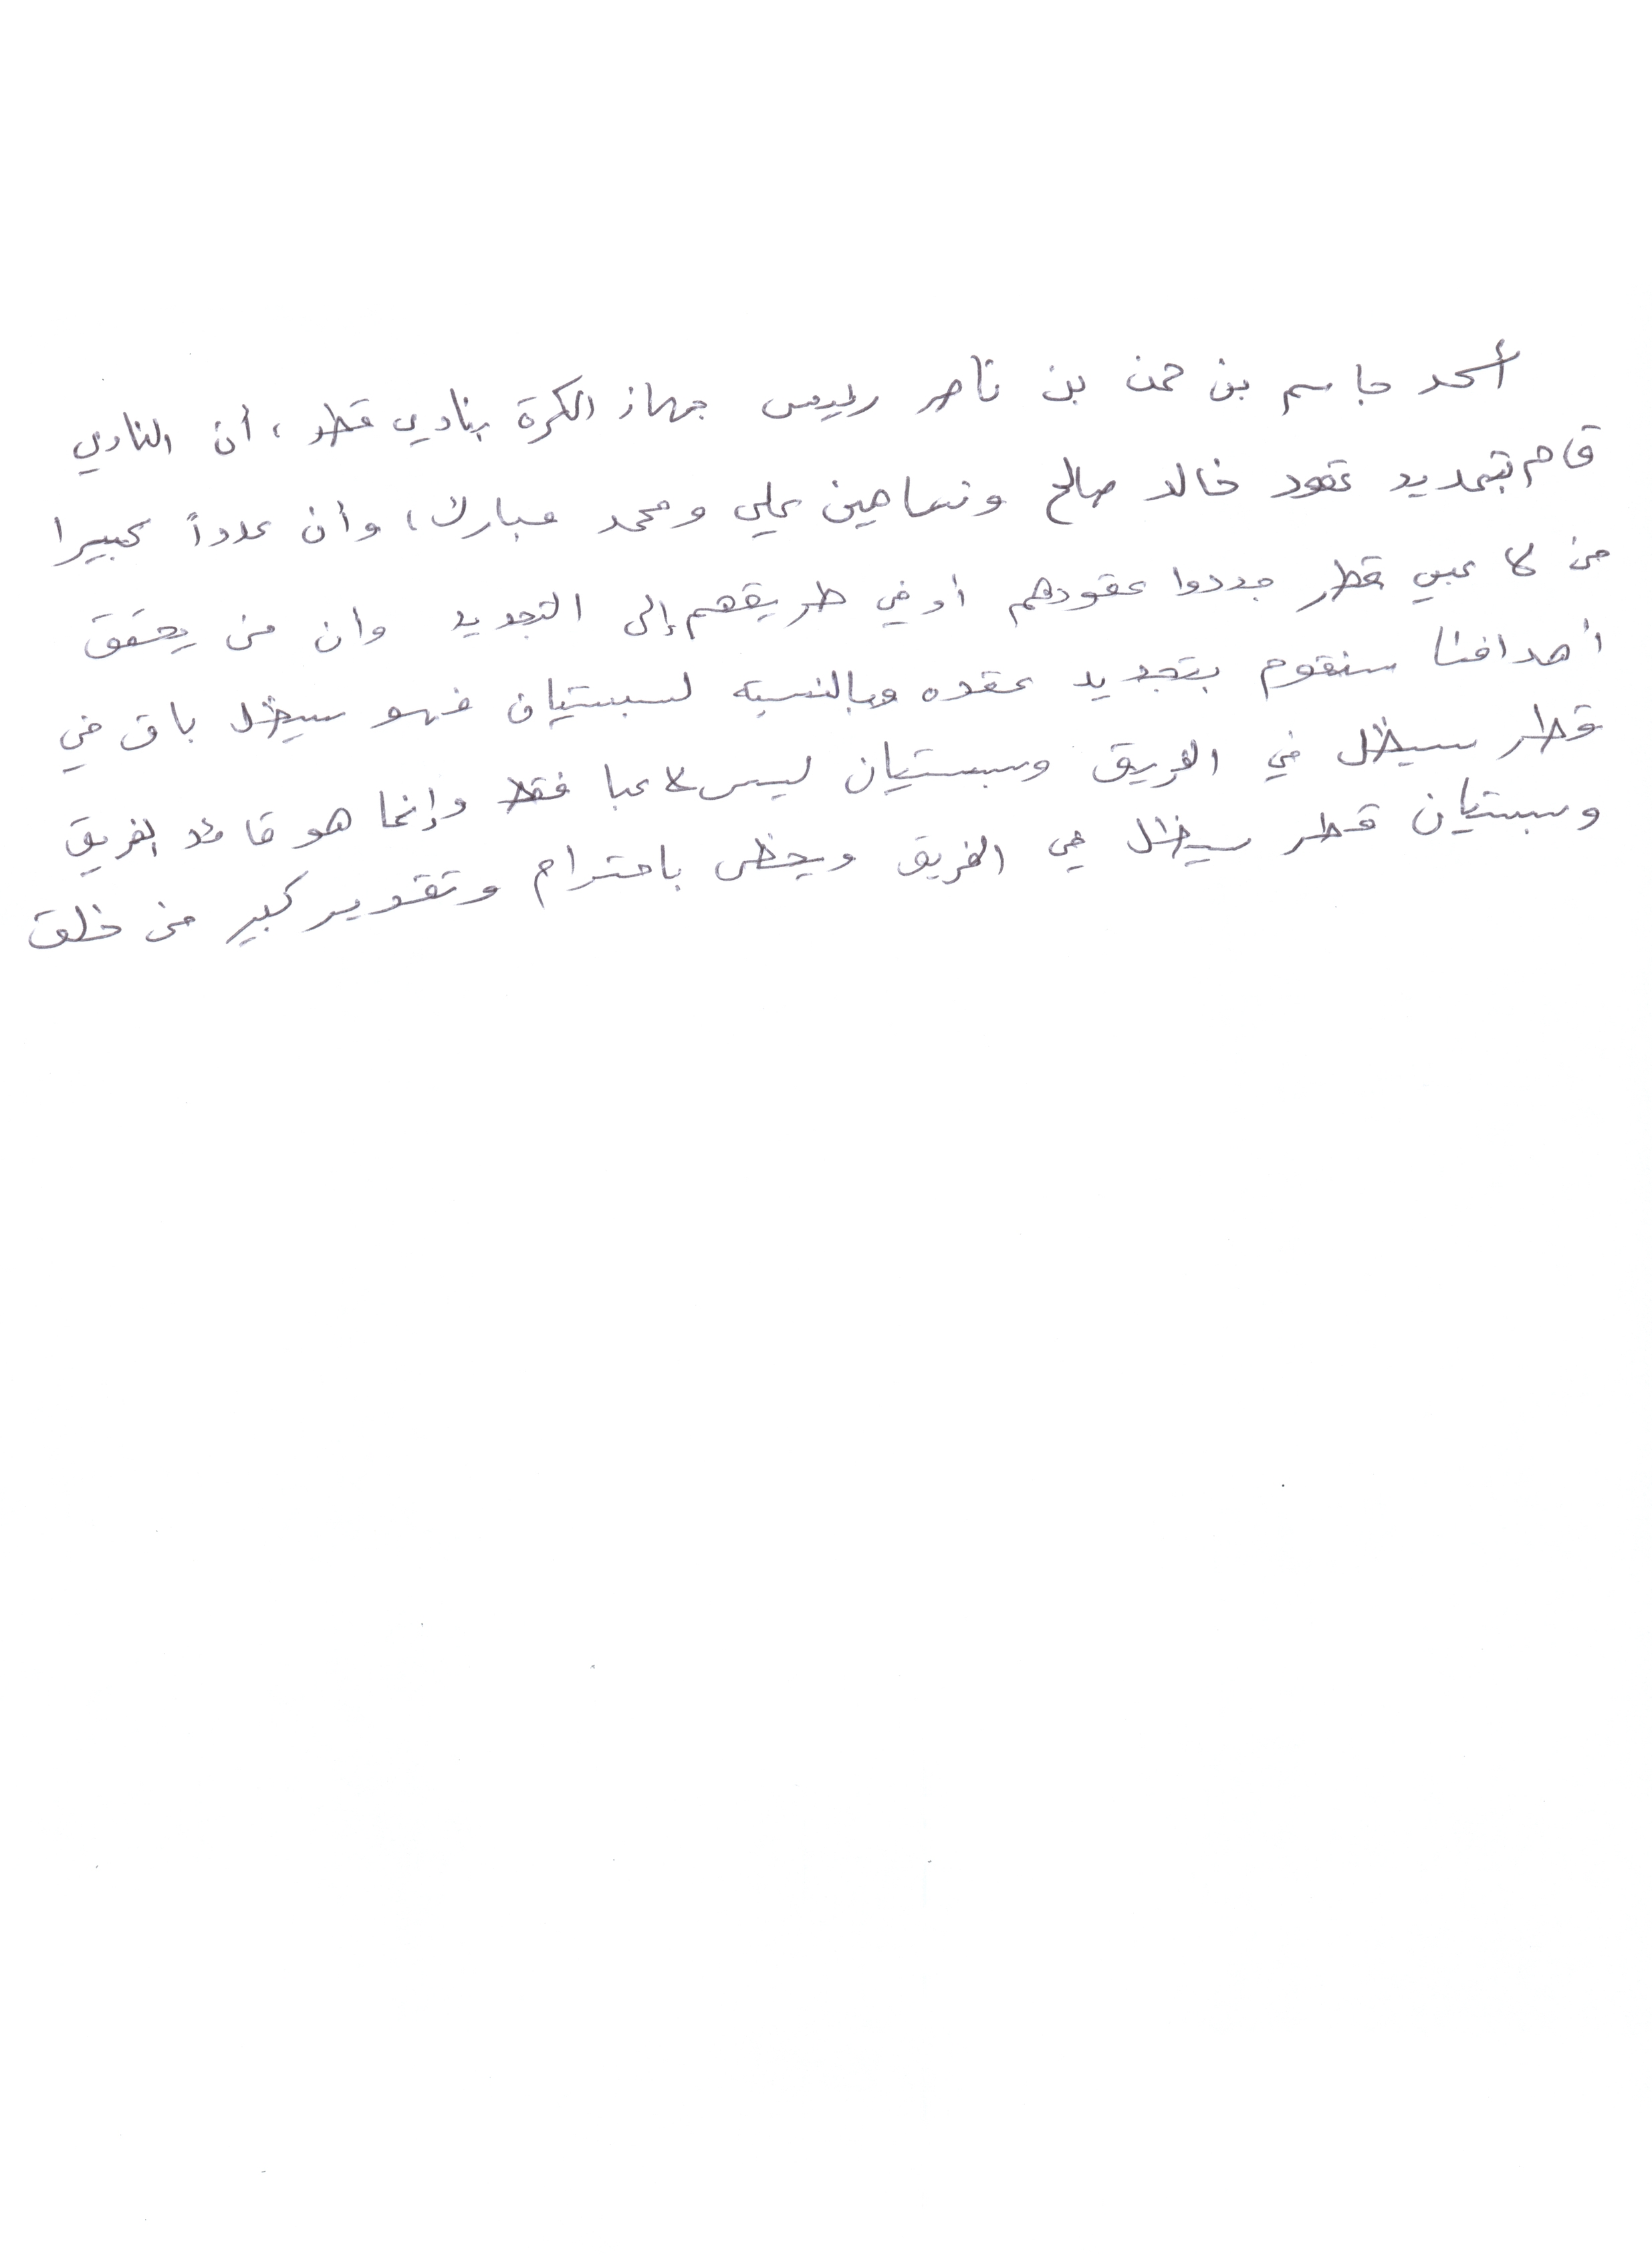 أكد جاسم بن حمن بن ناصر رئيس جهاز الكرة بنادي قطر، أن النادي
قام بتمديد عقود خالد صالح وشاهين علي ومحمد مبارك، وأن عدداً كبيرا
من لاعبي قطر جددوا عقودهم أو في طريقهم إلى التجديد وان من يحقق
أهدافنا سنقوم بتجديد عقده وبالنسبة لسبستيان فهو سيظل باق في
قطر سيظل في الفريق وسبستيان ليس لاعبا فقط وإنما هو قائد الفريق
وسبستيان قطر سيظل في الفريق ويحظى باحترام وتقدير كبير من خلق